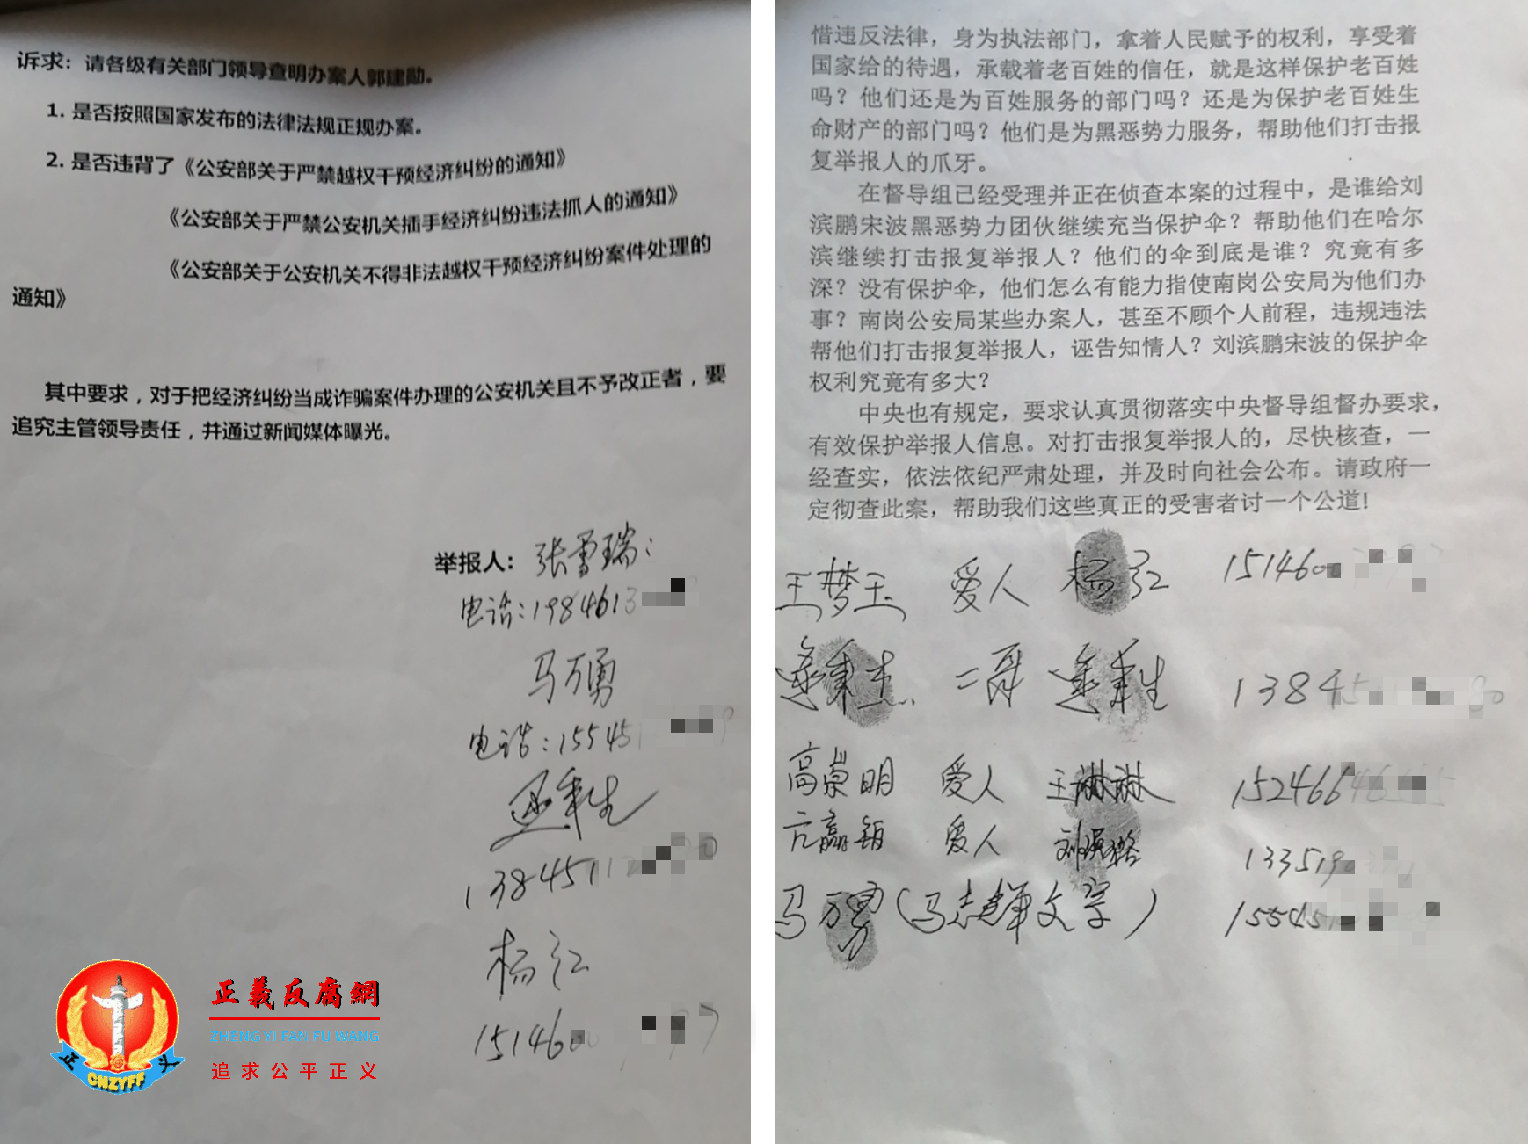 诉求：请各级有关部门领导查明办案人郭建勋。
1. 是否按照国家发布的法律法规正规办案。
2. 是否违背了《公安部关于严禁越权干预经济纠纷的通知》
《公安部关于严禁公安机关插手经济纠纷违法抓人的通知》
《公安部关于公安机关不得非法越权干预经济纠纷案件处理的
通知》
其中要求，对于把经济纠纷当成诈骗案件办理的公安机关且不予改正者，要
追究主管领导责任，并通过新闻媒体曝光。
举报人：张雪瑞：
电话：1984613
马万勇
电话：155451
秉生
1384511
杨江
151460
正義反腐網
ZHENG YI FAN FU WANG
追求公平正义
正 义
CNZYFF
惜违反法律，身为执法部门，拿着人民赋予的权利，享受着
国家给的待遇，承载着老百姓的信任，就是这样保护老百姓
吗？他们还是为百姓服务的部门吗？还是为保护老百姓生
命财产的部门吗？他们是为黑恶势力服务，帮助他们打击报
复举报人的爪牙。
在督导组已经受理并正在侦查本案的过程中，是谁给刘
滨鹏宋波黑恶势力团伙继续充当保护伞？帮助他们在哈尔
滨继续打击报复举报人？他们的伞到底是谁？究竟有多
深？没有保护伞，他们怎么有能力指使南岗公安局为他们办
事？南岗公安局某些办案人，甚至不顾个人前程，违规违法
帮他们打击报复举报人，诬告知情人？刘滨鹏宋波的保护伞
权利究竟有多大？
中央也有规定，要求认真贯彻落实中央督导组督办要求，
有效保护举报人信息。对打击报复举报人的，尽快核查，一
经查实，依法依纪严肃处理，并及时向社会公布。请政府一
定彻查此案，帮助我们这些真正的受害者讨一个公道！
王梦玉 爱人 杨江 151460
秉杰 二哥 秉生 13845
高崇明 爱人 王琳琳 152466
亢赢颖 爱人 刘 133519
马万勇（马志辉父亲） 155451